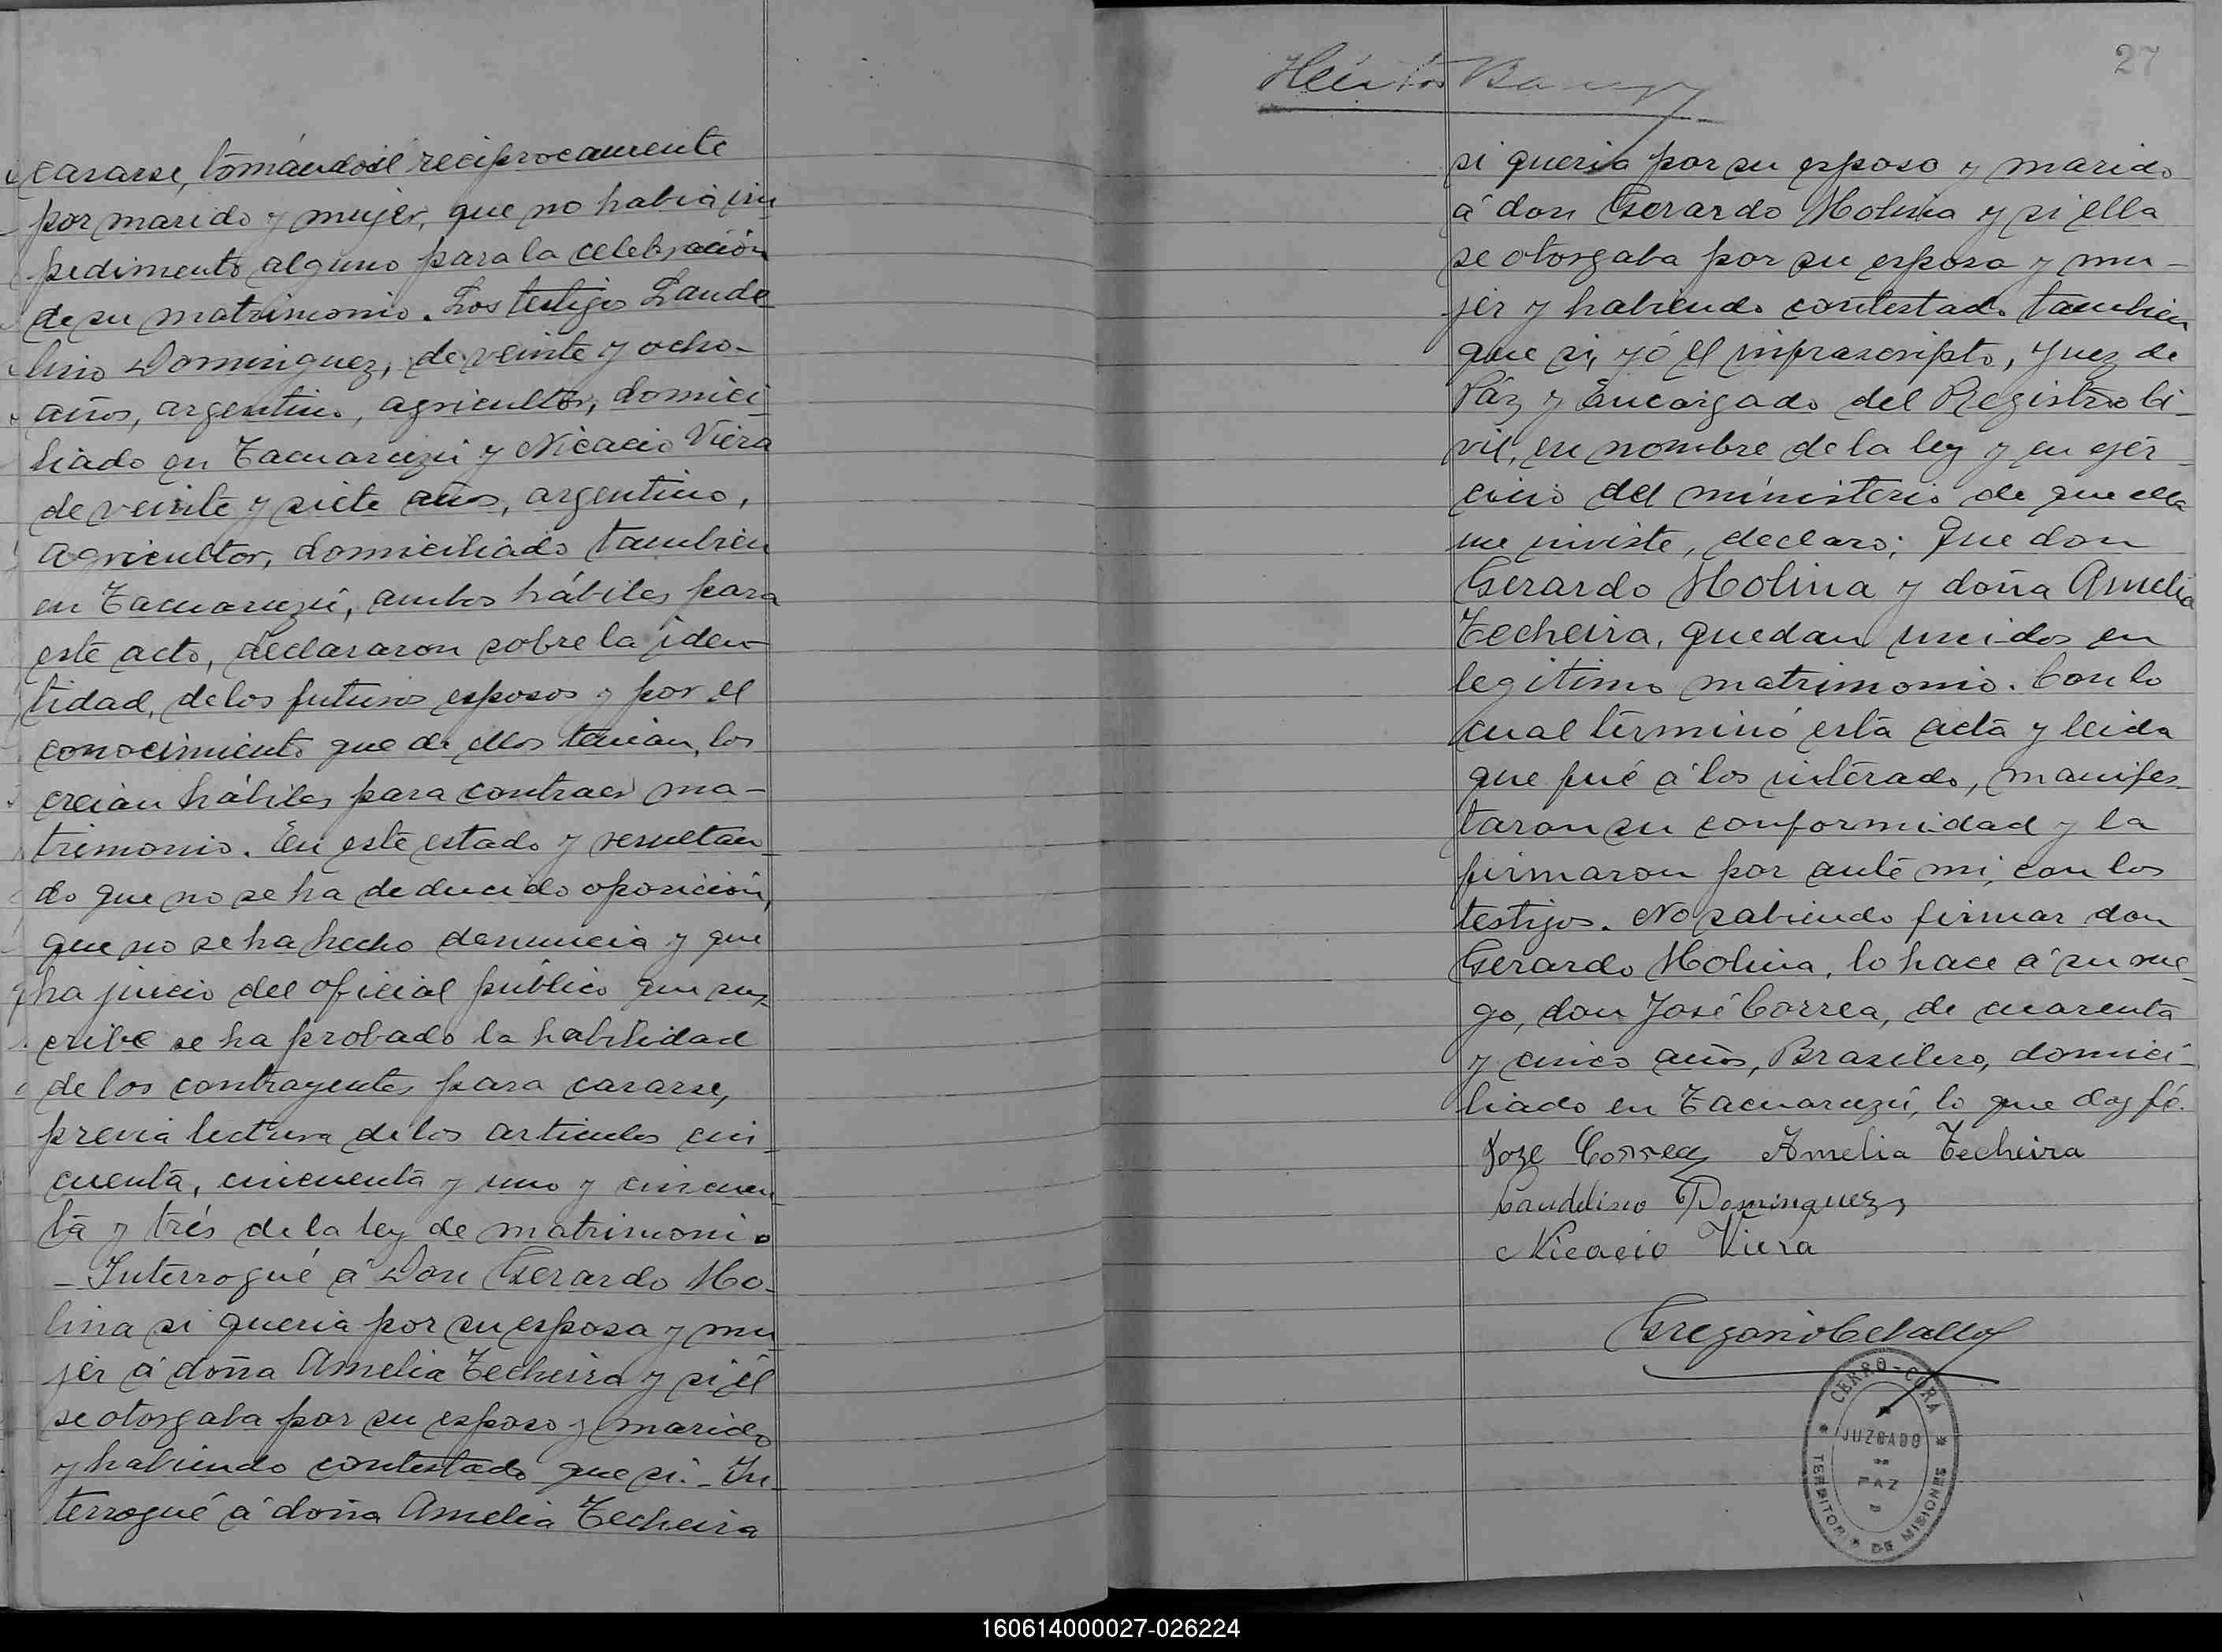 casarse, tomándose reciprocamente
por marido y mujer, que no habia im
pedimento alguno para la celebración
de su matrimonio. Los testigos Laude
lino Dominguez, de veinte y ocho-
años, argentino, agricultor, domici
liado en Tacuaruzú y Nicacio Viera
de veinte y siete años, argentino,
agricultor, domiciliado tambien
en Tacuaruzú, ambos hábiles para
este acto, declararon sobre la iden-
tidad, de los futuros esposos y por el
conocimiento que de ellos tenian, los
creian hábiles para contraer ma-
trimonio. En este estado y resultan
do que no se ha deducido oposición,
que no se ha hecho denuncia y que
ha juicio del oficial público que sus-
cribe se ha probado la habilidad
de los contrayentes para casarse,
previa lectura de los articulos cin
cuenta, cincuenta y uno y cincuen
ta y trés de la ley de matrimonio
-Interrogué á Don Gerardo Mo-
lina si queria por su esposa y mu
jer á doña Amelia Techeira y si él
se otorgaba por su esposo y marido
y habiendo contestado que si.- In
terrogué á doña Amelia Techeira
27
si queria por su esposo y marido
á don Gerardo Molina y si ella
se otorgaba por su esposa y mu-
jer y habiendo contestado tambien
que si, yó el infrascripto, Juez de
Páz y Encargado del Registro Ci-
vil, en nombre de la ley y en ejer-
cicio del ministerio de que ella
me inviste, declaro; Que don
Gerardo Molina y doña Amelia
Techeira, quedan unidos en
legitimo matrimonio. Con lo
cual términó esta acta y leida
que fué á los interado, manifes-
taron su conformidad y la
firmaron por ante mi, con los
testigos. No sabiendo firmar don
Gerardo Molina, lo hace á su rue-
go, don José Correa, de cuarenta
y cinco años, Brasilero, domici-
liado en Tacuaruzú, lo que doy fé.
Joze Correa Amelia Techeira
Lauddino Dominguez
Nicacio Viera
Gregorio Ceballos
CERRO-CORA
JUZGADO
DE
PAZ
TERRITORIO DE MISIONES
160614000027-026224